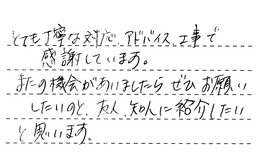 とても丁寧な対応、アドバイス、工事で
感謝しています。
またの機会がありましたら ぜひ お願い
したいのと、友人、知人に紹介したい
と思います。